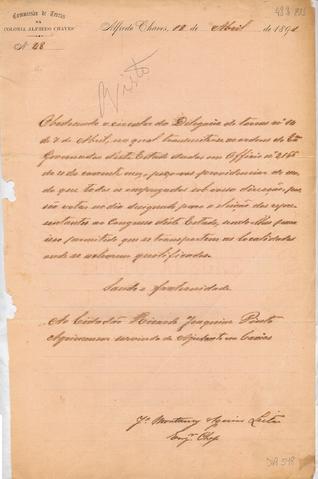 Commissão de Terras
NA
COLONIA ALFREDO CHAVES
N. 28
Alfredo Chaves, 12 de Abril de 1891
Visto
Obedecendo a circular da Delegacia de terras nº 10
de 7 de Abril, na qual transcreve-se a ordem do
Governador deste Estado dada em Officio nº
do corrente mez, peço-vos providenciar de mo-
do que todos os empregados sob vossa direcção, pos-
são votar no dia designado para a eleição dos repre-
sentantes ao Congresso deste Estado, sendo-lhes para
isso permittido que se transportem as localidades
onde se acharem qualificados.
Saude e fraternidade
Ao Cidadão Ricardo Joaquim Pinto
Agrimensor servindo de Ajudante em Caxias
Jº Montaury Aguiar Leitão
Engº Chefe